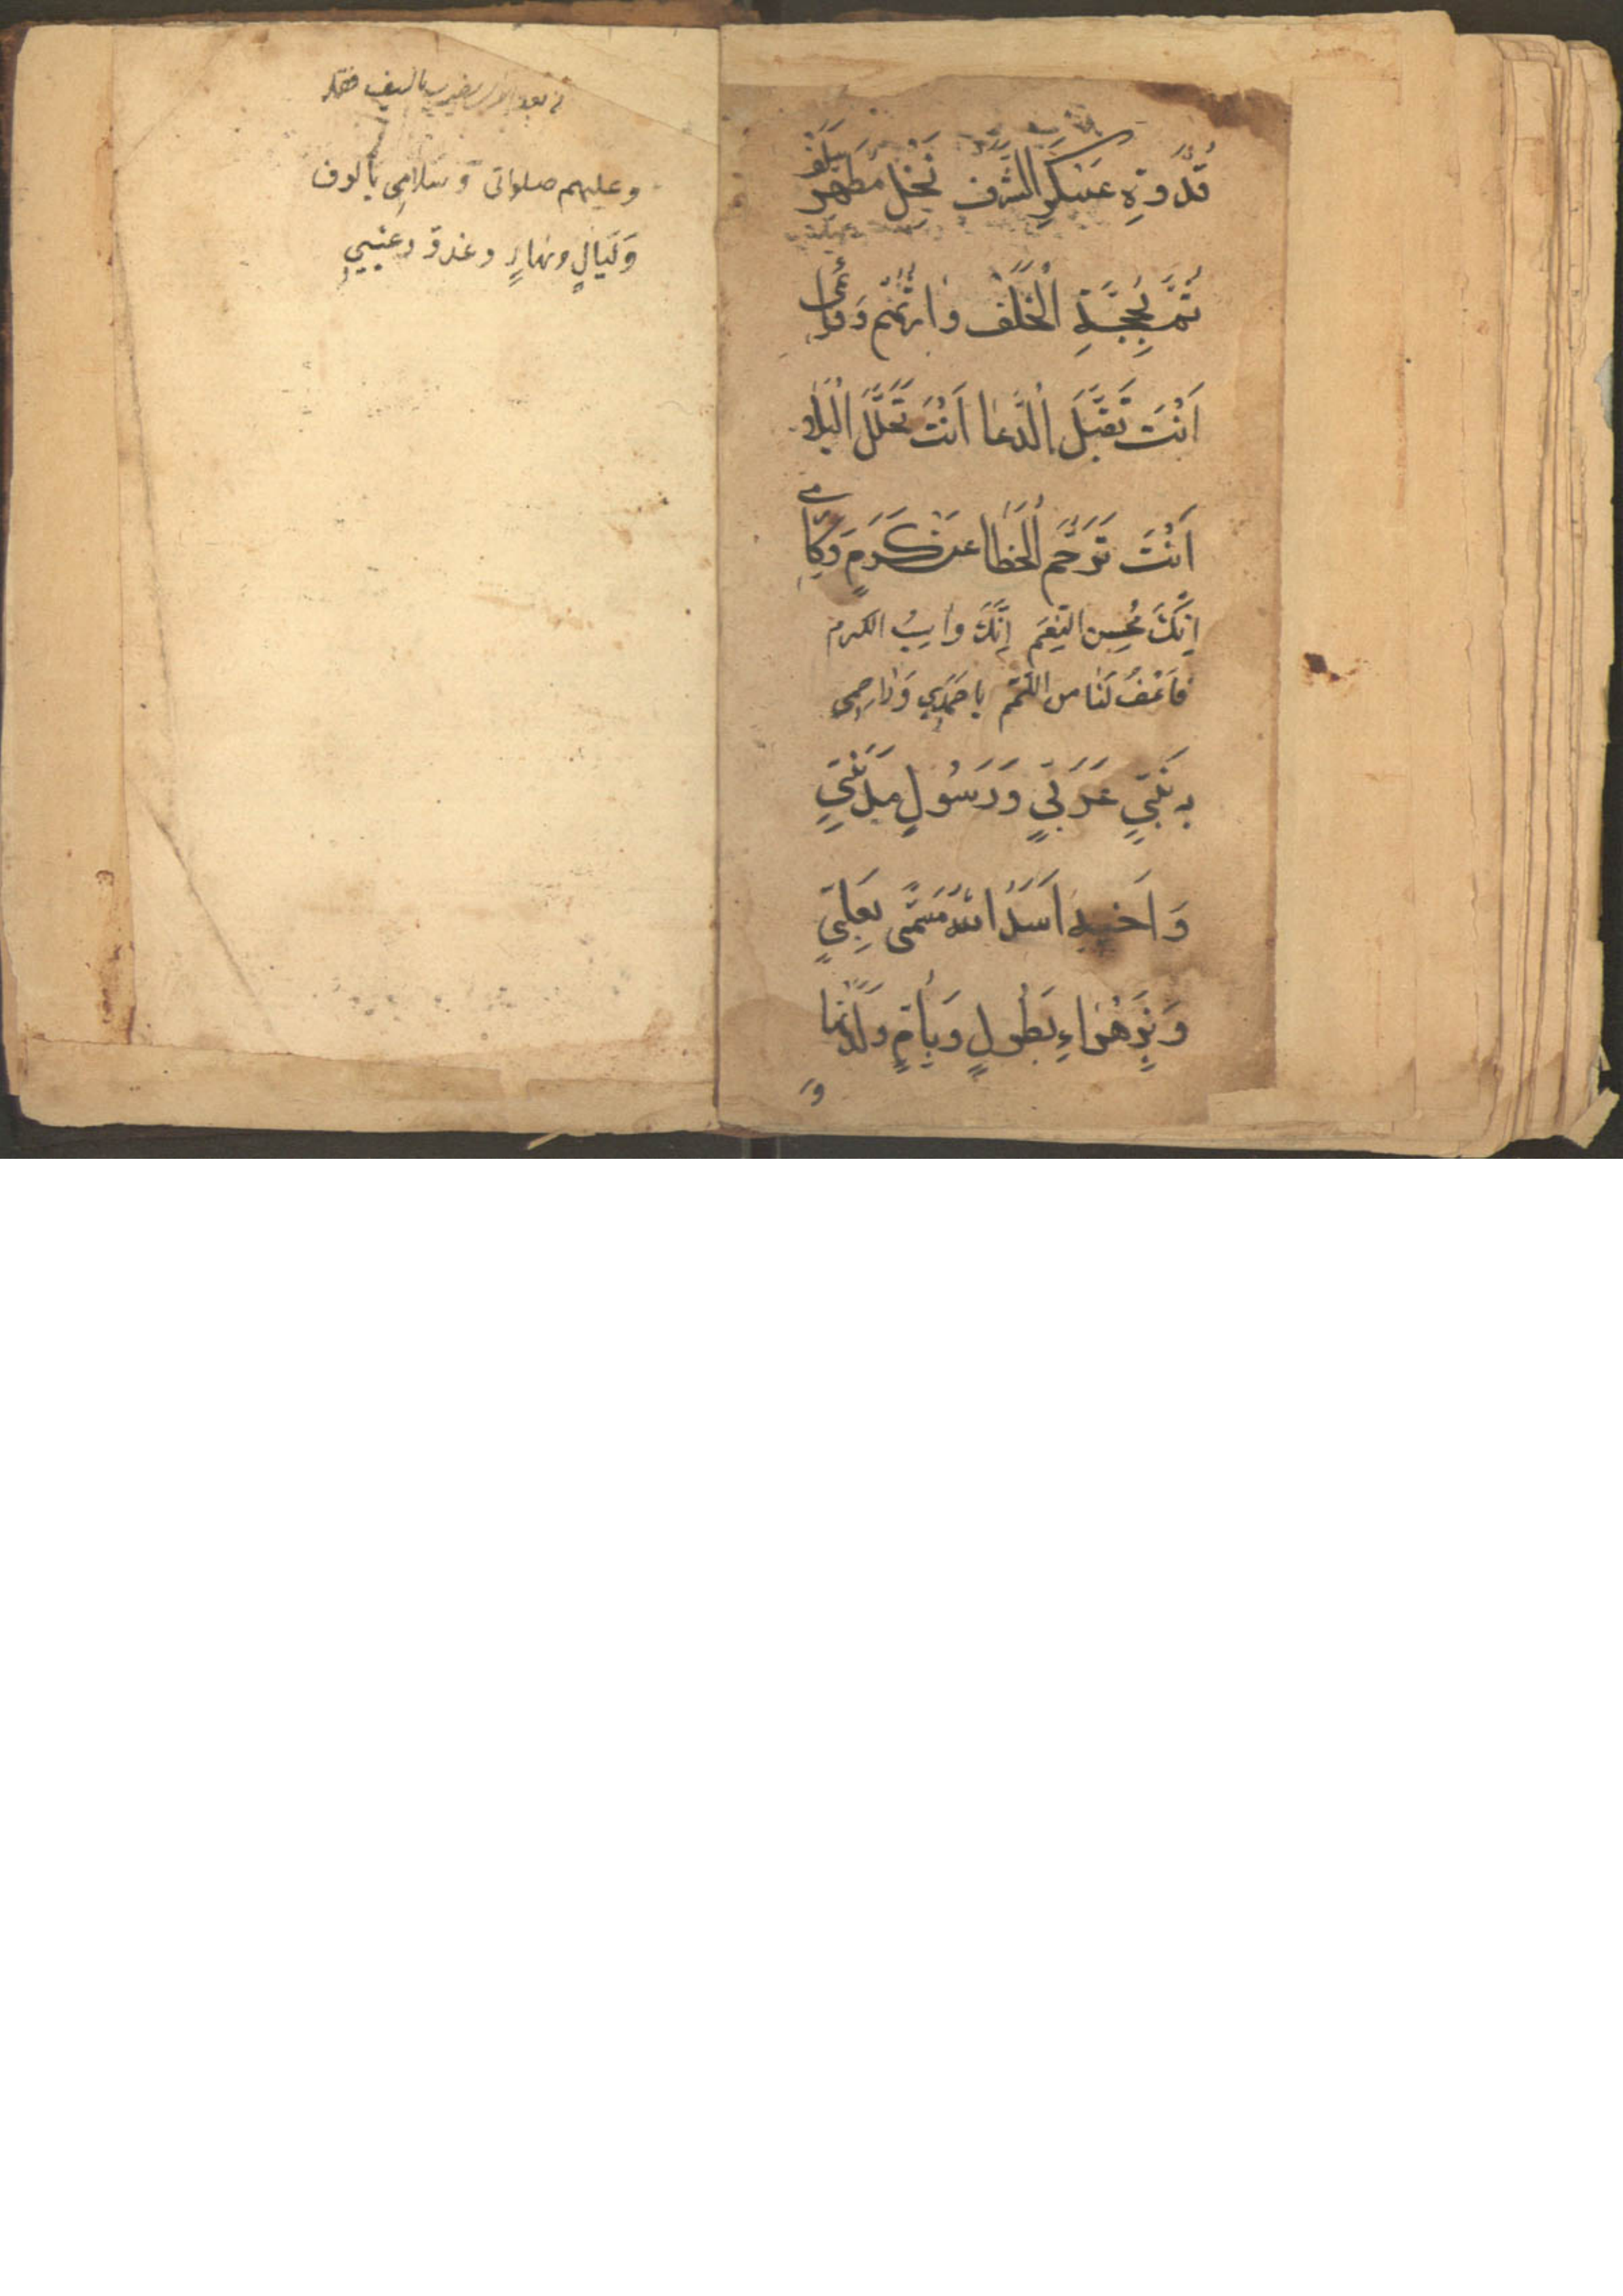 قُدْوَةِ عَسْكَرِ الشَّرَفِ نَجْلِ مُطَهَّرِ
ثُمَّ بِحُجَّةِ الْخَلَفِ وَارِثُهُمْ
اَنْتَ تَقَبَّلَ الدُّعَا اَنْتَ تُحَلِّلُ الْبَلَا
اَنْتَ تَرَحَّمِ الْخَطَا عَنْ كَرَمٍ
اِنَّكَ مُحْسِنِ النِّعَمِ اِنَّكَ وَاهِبُ الكرم
فَاعْفُ لَنَا من اللَّمَمِ يا صَمَدِي وَرَاحِمِي
بِه نَبِيٍّ عَرَبِيٍّ وَرَسُولٍ مَدَنِيٍّ
وَاَخِيهِ اَسَدُ اللهِ مُسَمًّى بِعَلِيٍّ
وَبِزَهْرَاءِ بَطُولٍ وَبِاُمٍّ وَلَدَتْهَا
و
بالسيف
وعليهم صلواتى وَسَلامِى بألوف
وَلَيَالٍ ونهارٍ وغدوّ وعشيىٍ